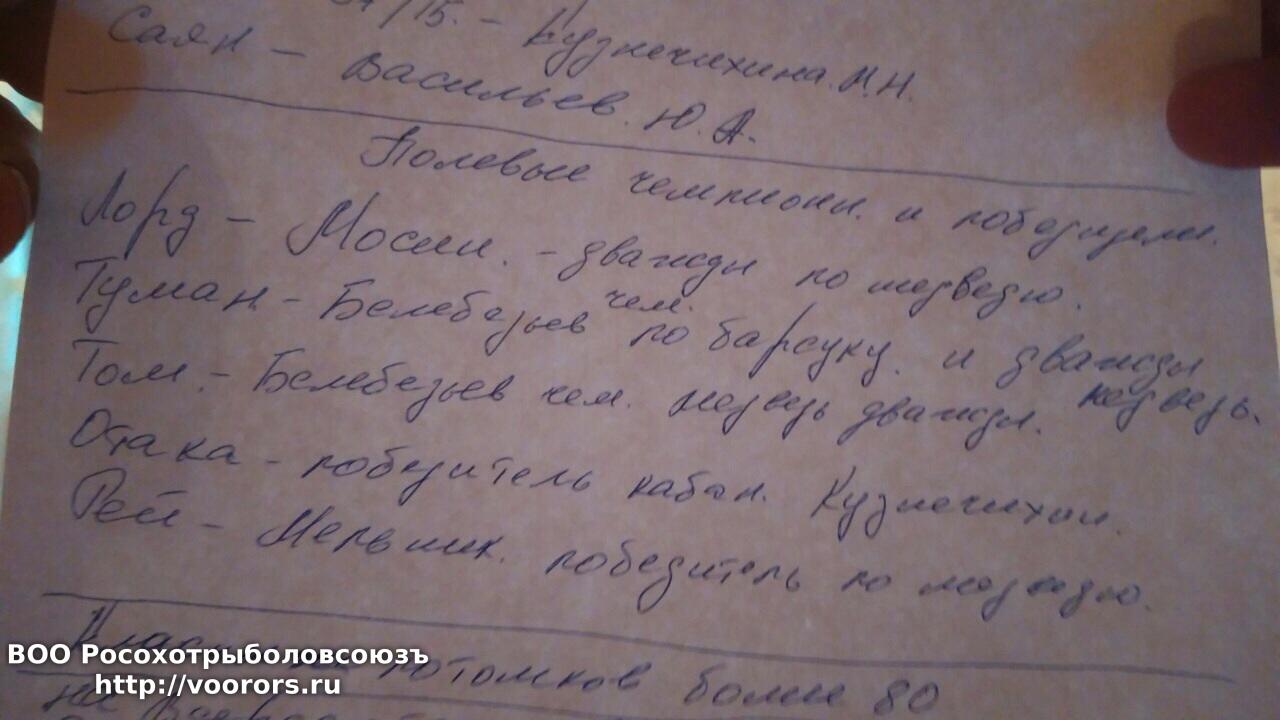 /15. - Кузнечихина.Н.Н.
Саян - Васильев. Ю.А.
Полевые чемпионы. и победители.
Лорд - Мосин. - дважды по медведю.
Туман - Белебезьев чем. по барсуку. и дважды медведь.
Том. - Белебезьев чем. медведь дважды.
Отака - победитель кабан. Кузнечихин.
Рей - Мельник. победитель по медведю.
потомков более 80
на
ВОО Росохотрыболовсоюзъ
http://voorors.ru